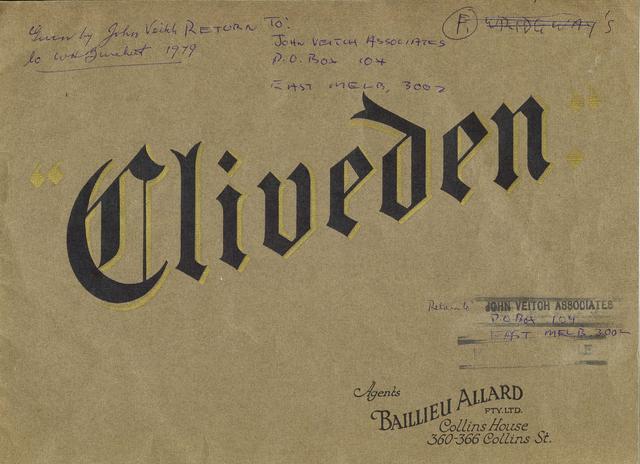 Given by John Veitch
to WH Burchett 1979
RETURN TO:
JOHN VEITCH ASSOCIATES
P.O. BOX 104
EAST MELB, 3002
F. WRIDGWAY's
"Cliveden."
Return to JOHN VEITCH ASSOCIATES
P.O. Box 104
EAST MELB 3002
E
Agents
BAILLIEU ALLARD
PTY. LTD.
Collins House
360-366 Collins St.